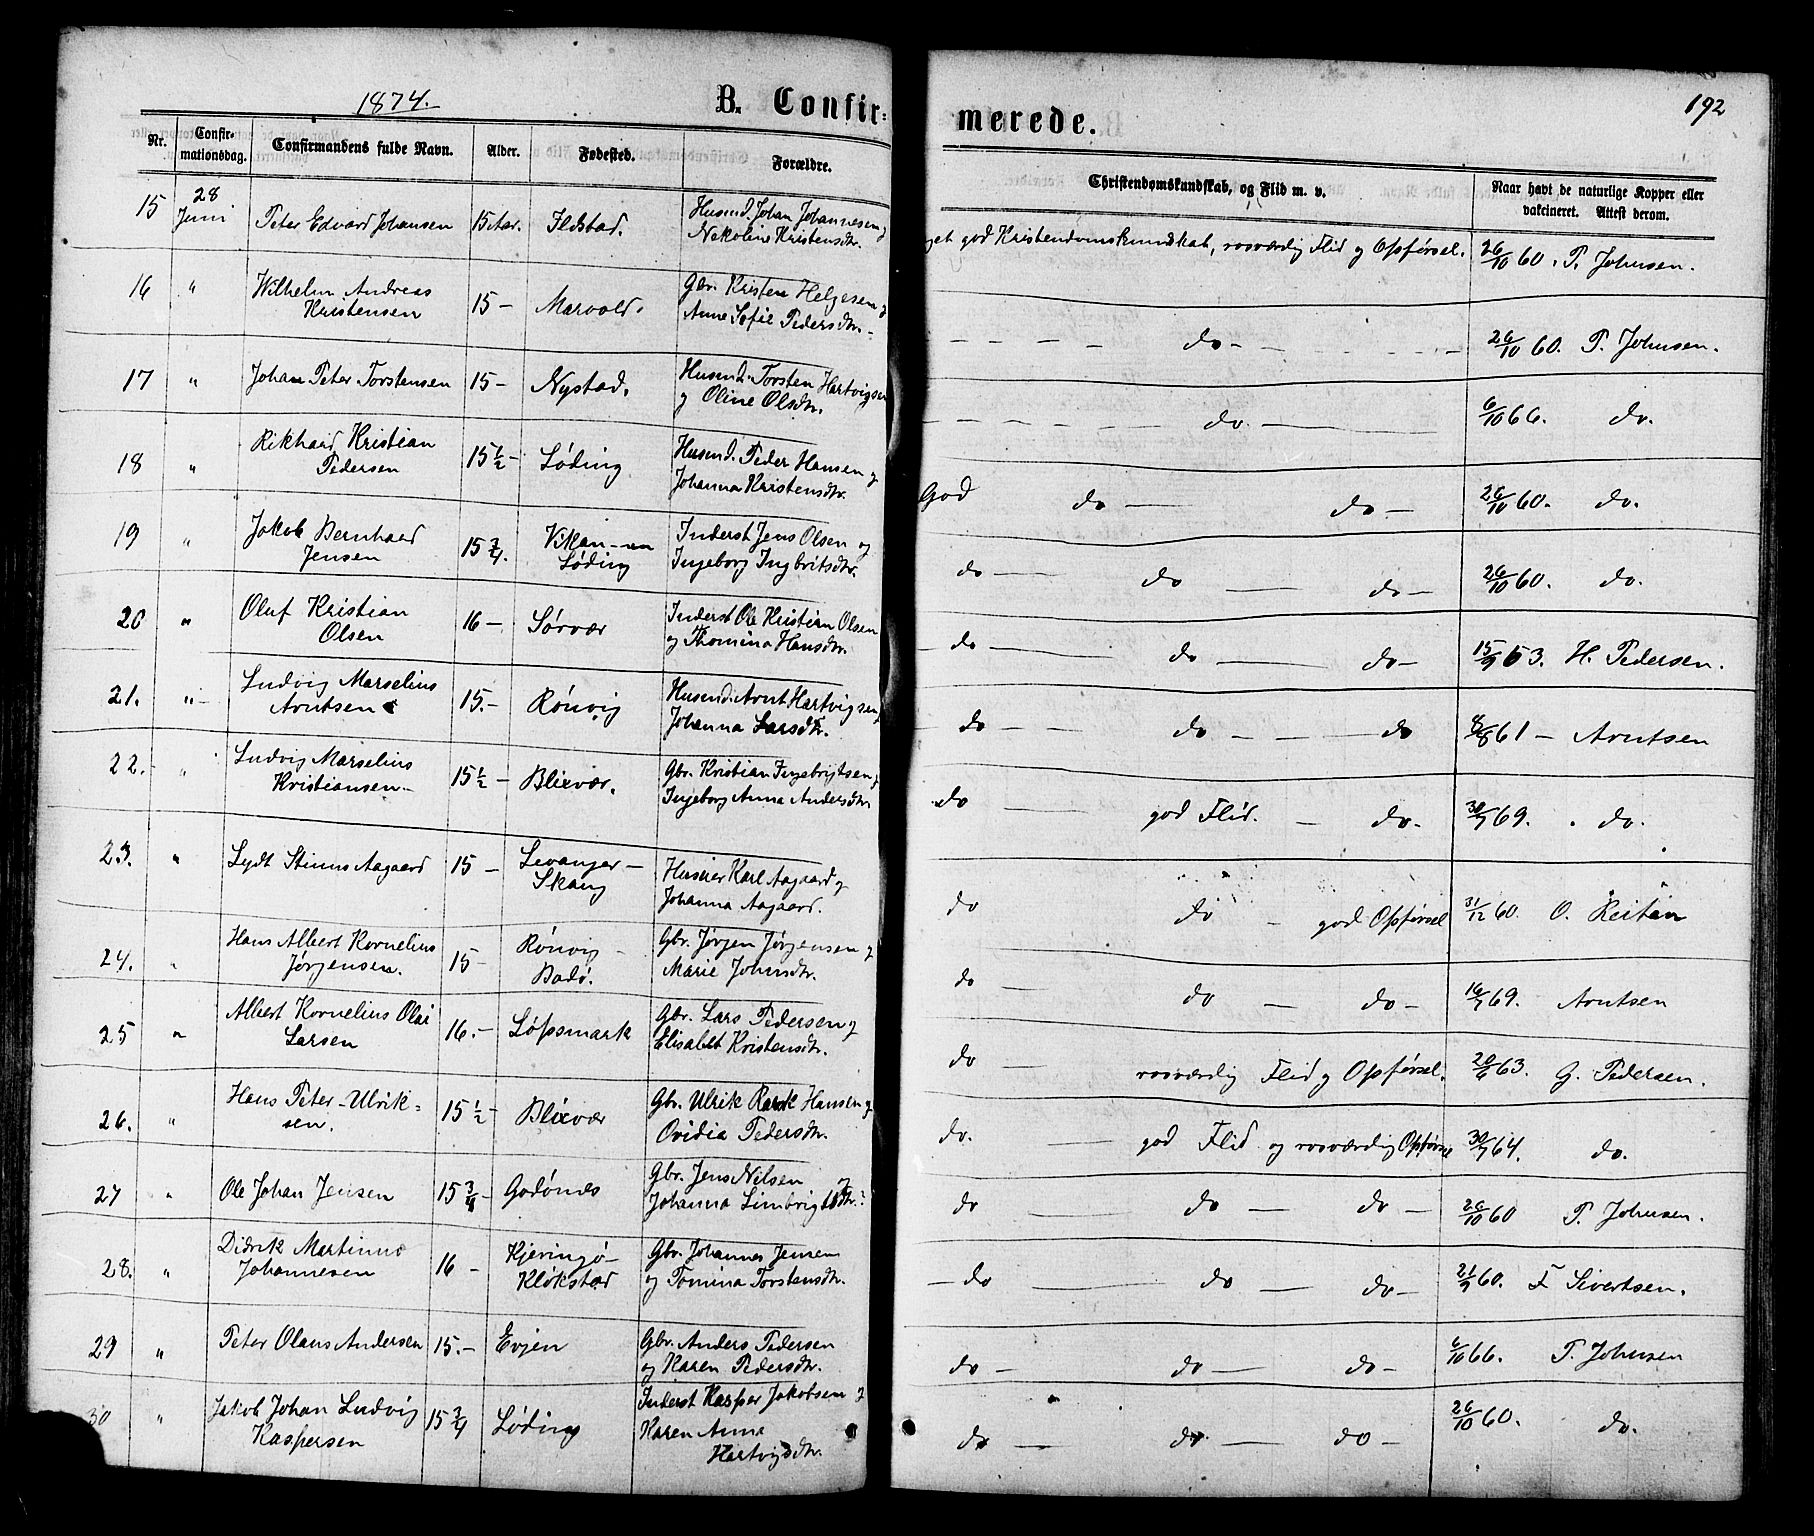 1874.
B. Confir-
merede.
192
Nr.
Confir-
mationsdag.
Confirmandens fulde Navn.
Alder.
Fødested.
Forældre.
Christendomskundskab, og Flid m. v.
Naar havt de naturlige Kopper eller
vakcineret. Attest derom.
15 28 Juni Peter Edvard Johansen 15 Aar. Ildstad. Husmd. Johan Johannesen og
Nikoline Kristensdtr.
get god Kristendomskundskab, rosværdig Flid og Opførsel. 26/10 60. P. Johnsen.
16 " Wilhelm Andreas
Kristensen 15 - Marvold. Gbr. Kristen Helgesen og
Anne Sofie Pedersdtr. -
- - - - do - - - - - - 26/10 60. P. Johnsen.
17 " Johan Peter Torstensen 15 - Nystad. Husmd. Torsten Hartvigsen
og Oline Olsdtr.
- - - - do. - 6/10 66. do.
18 " Rikhard Kristian
Pedersen 15 1/2 - Løding Husmd. Peder Hansen og
Johanna Kristensdtr.
God do - do - 26/10 60. do.
19 " Jakob Bernhard
Jensen 15 3/4. Vikan
Løding Inderst Jens Olsen og
Ingeborg Ingbritsdtr.
do - do - do - 26/10 60. do.
20 " Oluf Kristian
Olsen 16 - Sørvær Inderst Ole Kristian Olsen
og Thomina Hansdtr.
do - do - do - 15/9 63. H. Pedersen.
21. " - Ludvig Marselius
Arntsen 15. - Rönvig Husmd. Arnt Hartvigsen
Johanna Larsdtr.
do - do - - do 8/8 61 - Arntsen
22. - " Ludvig Marselius
Kristiansen - 15 1/2 - Blixvær. Gbr. Kristian Ingebrigtsen og
Ingeborg Anna Andersdtr.
do - god Flid. - do. 30/7 69. do.
23. " Lydt Stinus Aagaard 15 - Levanger -
Skaug Husmd Karl Aagaard og
Johanna Aagaard.
do do - god Opførsel 31/12 60. O. Reitan
24. " Hans Albert Kornelius
Jørgensen. 15 - Rönvig -
Bodö. Gbr. Jørgen Jørgensen og
Marie Johnsdtr.
do - do - do - 16/7 69. Arntsen
25 " Albert Kornelius Olai
Larsen 16. - Løpsmark Gbr. Lars Pedersen og
Elisabet Kristensdtr.
do - rosværdig Flid og Opførsel. 20/6 63. G. Pedersen.
26. " Hans Peter Ulrik-
sen. 15 1/2 - Blixvær Gbr. Ulrik Hansen og
Ovidia Pedersdtr.
do. - god Flid og rosværdig Opførsel 30/7 64. do.
27 " Ole Johan Jensen 15 3/4 - Godönes Gbr. Jens Nilsen
Johanna
do do do - 26/10 60 P. Johnsen.
28. " Didrik Martinus
Johannesen 16 - Kjeringö -
Kløkstad Gbr. Johannes Jensen
og Tomina Torstensdtr.
- do do do - 21/9 60. F Sivertsen.
29 " Peter Olaus Andersen 15. - Evjen Gbr. Anders Pedersen
og Karen Pedersdtr.
do - do - do - 6/10 66. P. Johnsen
30 " Jakob Johan Ludvig
Kaspersen 15 3/4 Løding Inderst Kasper Jakobsen og
Karen Anna
Hartvigsdtr.
do - do - do - 26/10 60. do.